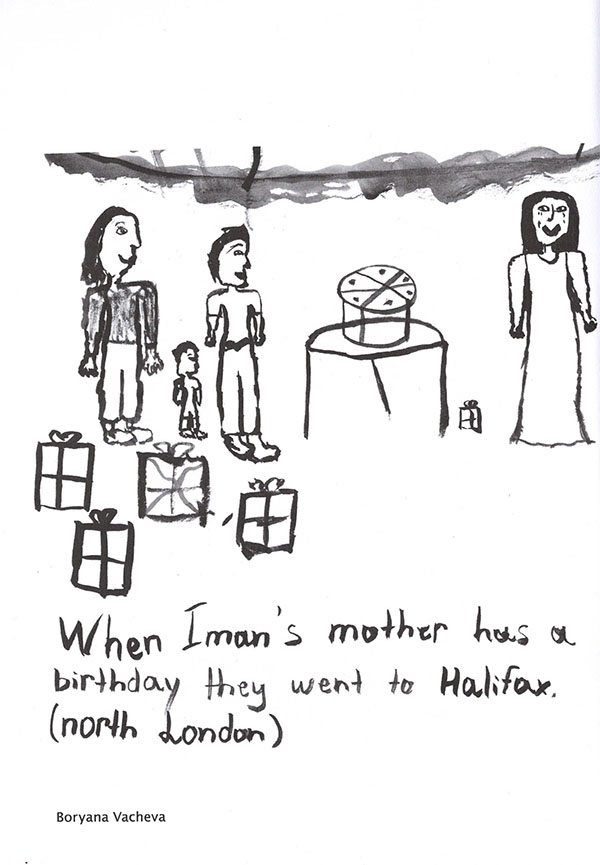 When Iman's mother has a
birthday they went to Halifax.
(north London)
Boryana Vacheva